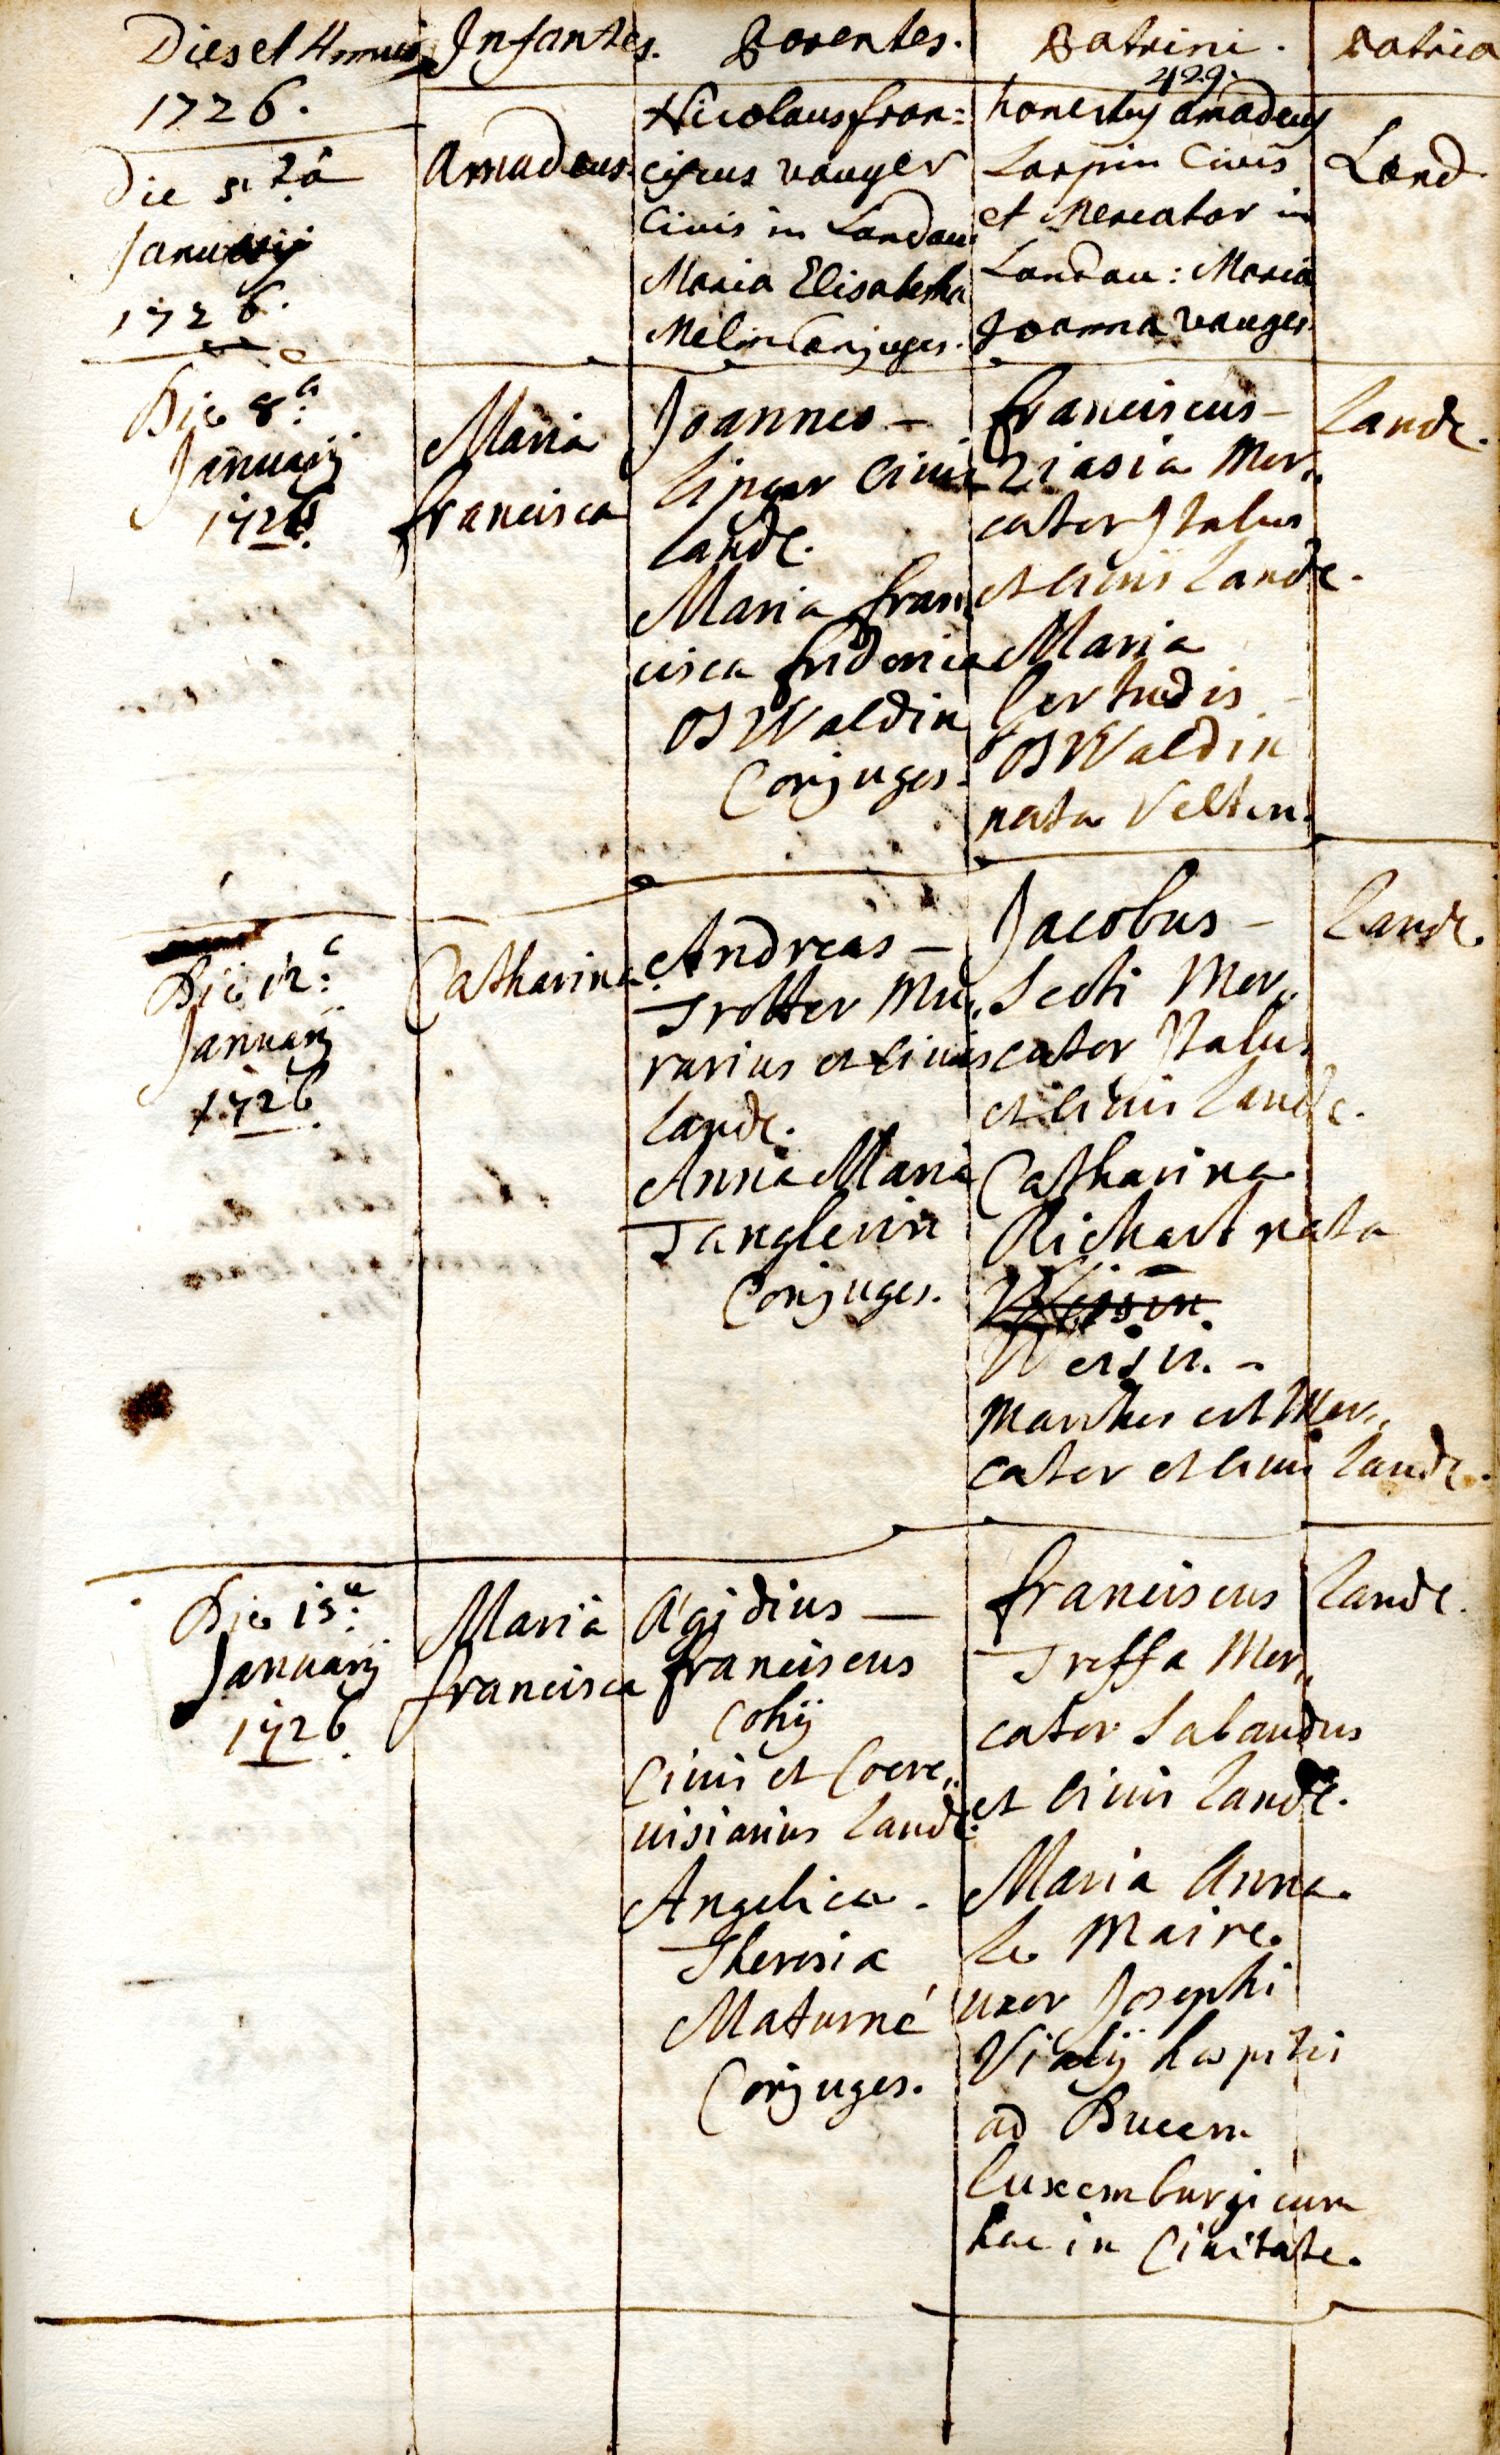 Dies et Annus Infantes. Parentes. Patrini. Patria
429.
1726.
Die 5ta
Januarij
1726.
Amadeus
Nicolaus fran=
ciscus vauger
Civis in Landau
Maria Elisabetha
Melin Conjuges.
honestus amadeus
Larpin Civis
et Mercator in
Landau: Maria
Joanna vauger
Land
Die 8a:
Januarij
1726.
Maria
francisca
Joannes –
civis
Landc.
Maria fran
cisca friderica
OsWaldin
Conjuges.
franciscus –
Ziasia Mer,,
cator Italus
et civis Landc.
Maria
Gertrudis
OsWaldin
nata Velten.
Landc.
Die 12:a
Januarij
1726
Catharina
Andreas –
Trotter Mu,,
rarius et civis
Landc.
Anna Maria
Tanglerin
Conjuges.
Jacobus –
Scoti Mer,,
cator Italus
et civis Landc.
Catharina
Richart nata
Weisin. –
Maritus est Mer,,
cator et civis Landc.
Landc.
Die 15:a
Januarij
1726.
Maria
francisca
Ägidius –
franciscus
Cohij
Civis et Coere,,
visiarius Landc.
Angelica.
Theresia
Maturné
Conjuges.
franciscus
Treffa Mer,,
cator Sabaudus
et civis Landc.
Maria Anna.
le Maire.
uxor Josephi
Vialij hospitis
ad Ducem
Luxemburgicum
hac in Civitate.
Landc.